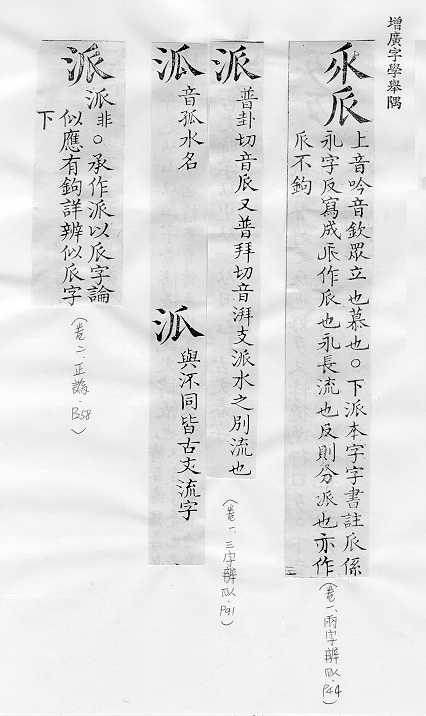 增廣字學舉隅
乑𠂢
上音吟音欽眾立也慕也○下派本字字書註𠂢係
永字反寫成𠂢作𠂢也永長流也反則分派也亦作
𠂢不鉤
(卷一、兩字辨似、P44)
派
普卦切音𠂢又普拜切音湃支派水之別流也
(卷一、三字辨似、P91)
泒
音孤水名
𣲖
與沠同皆古文流字
派
派非○承作派以𠂢字論
似應有鉤詳辨似𠂢字
下
(卷二、正譌、P258)